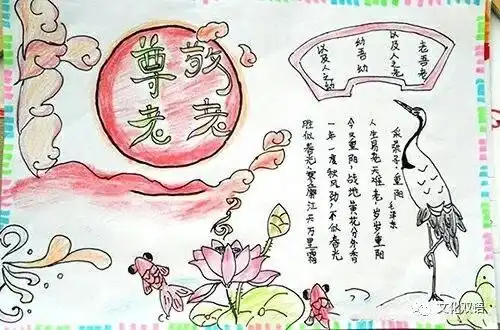 敬老
尊老
老吾老
以及人之老
幼吾幼
以及人之幼
采桑子·重阳
毛泽东
人生易老天难老,岁岁重阳
今又重阳,战地黄花分外香
一年一度秋风劲,不似春光
胜似春光,寥廓江天万里霜
文化双语